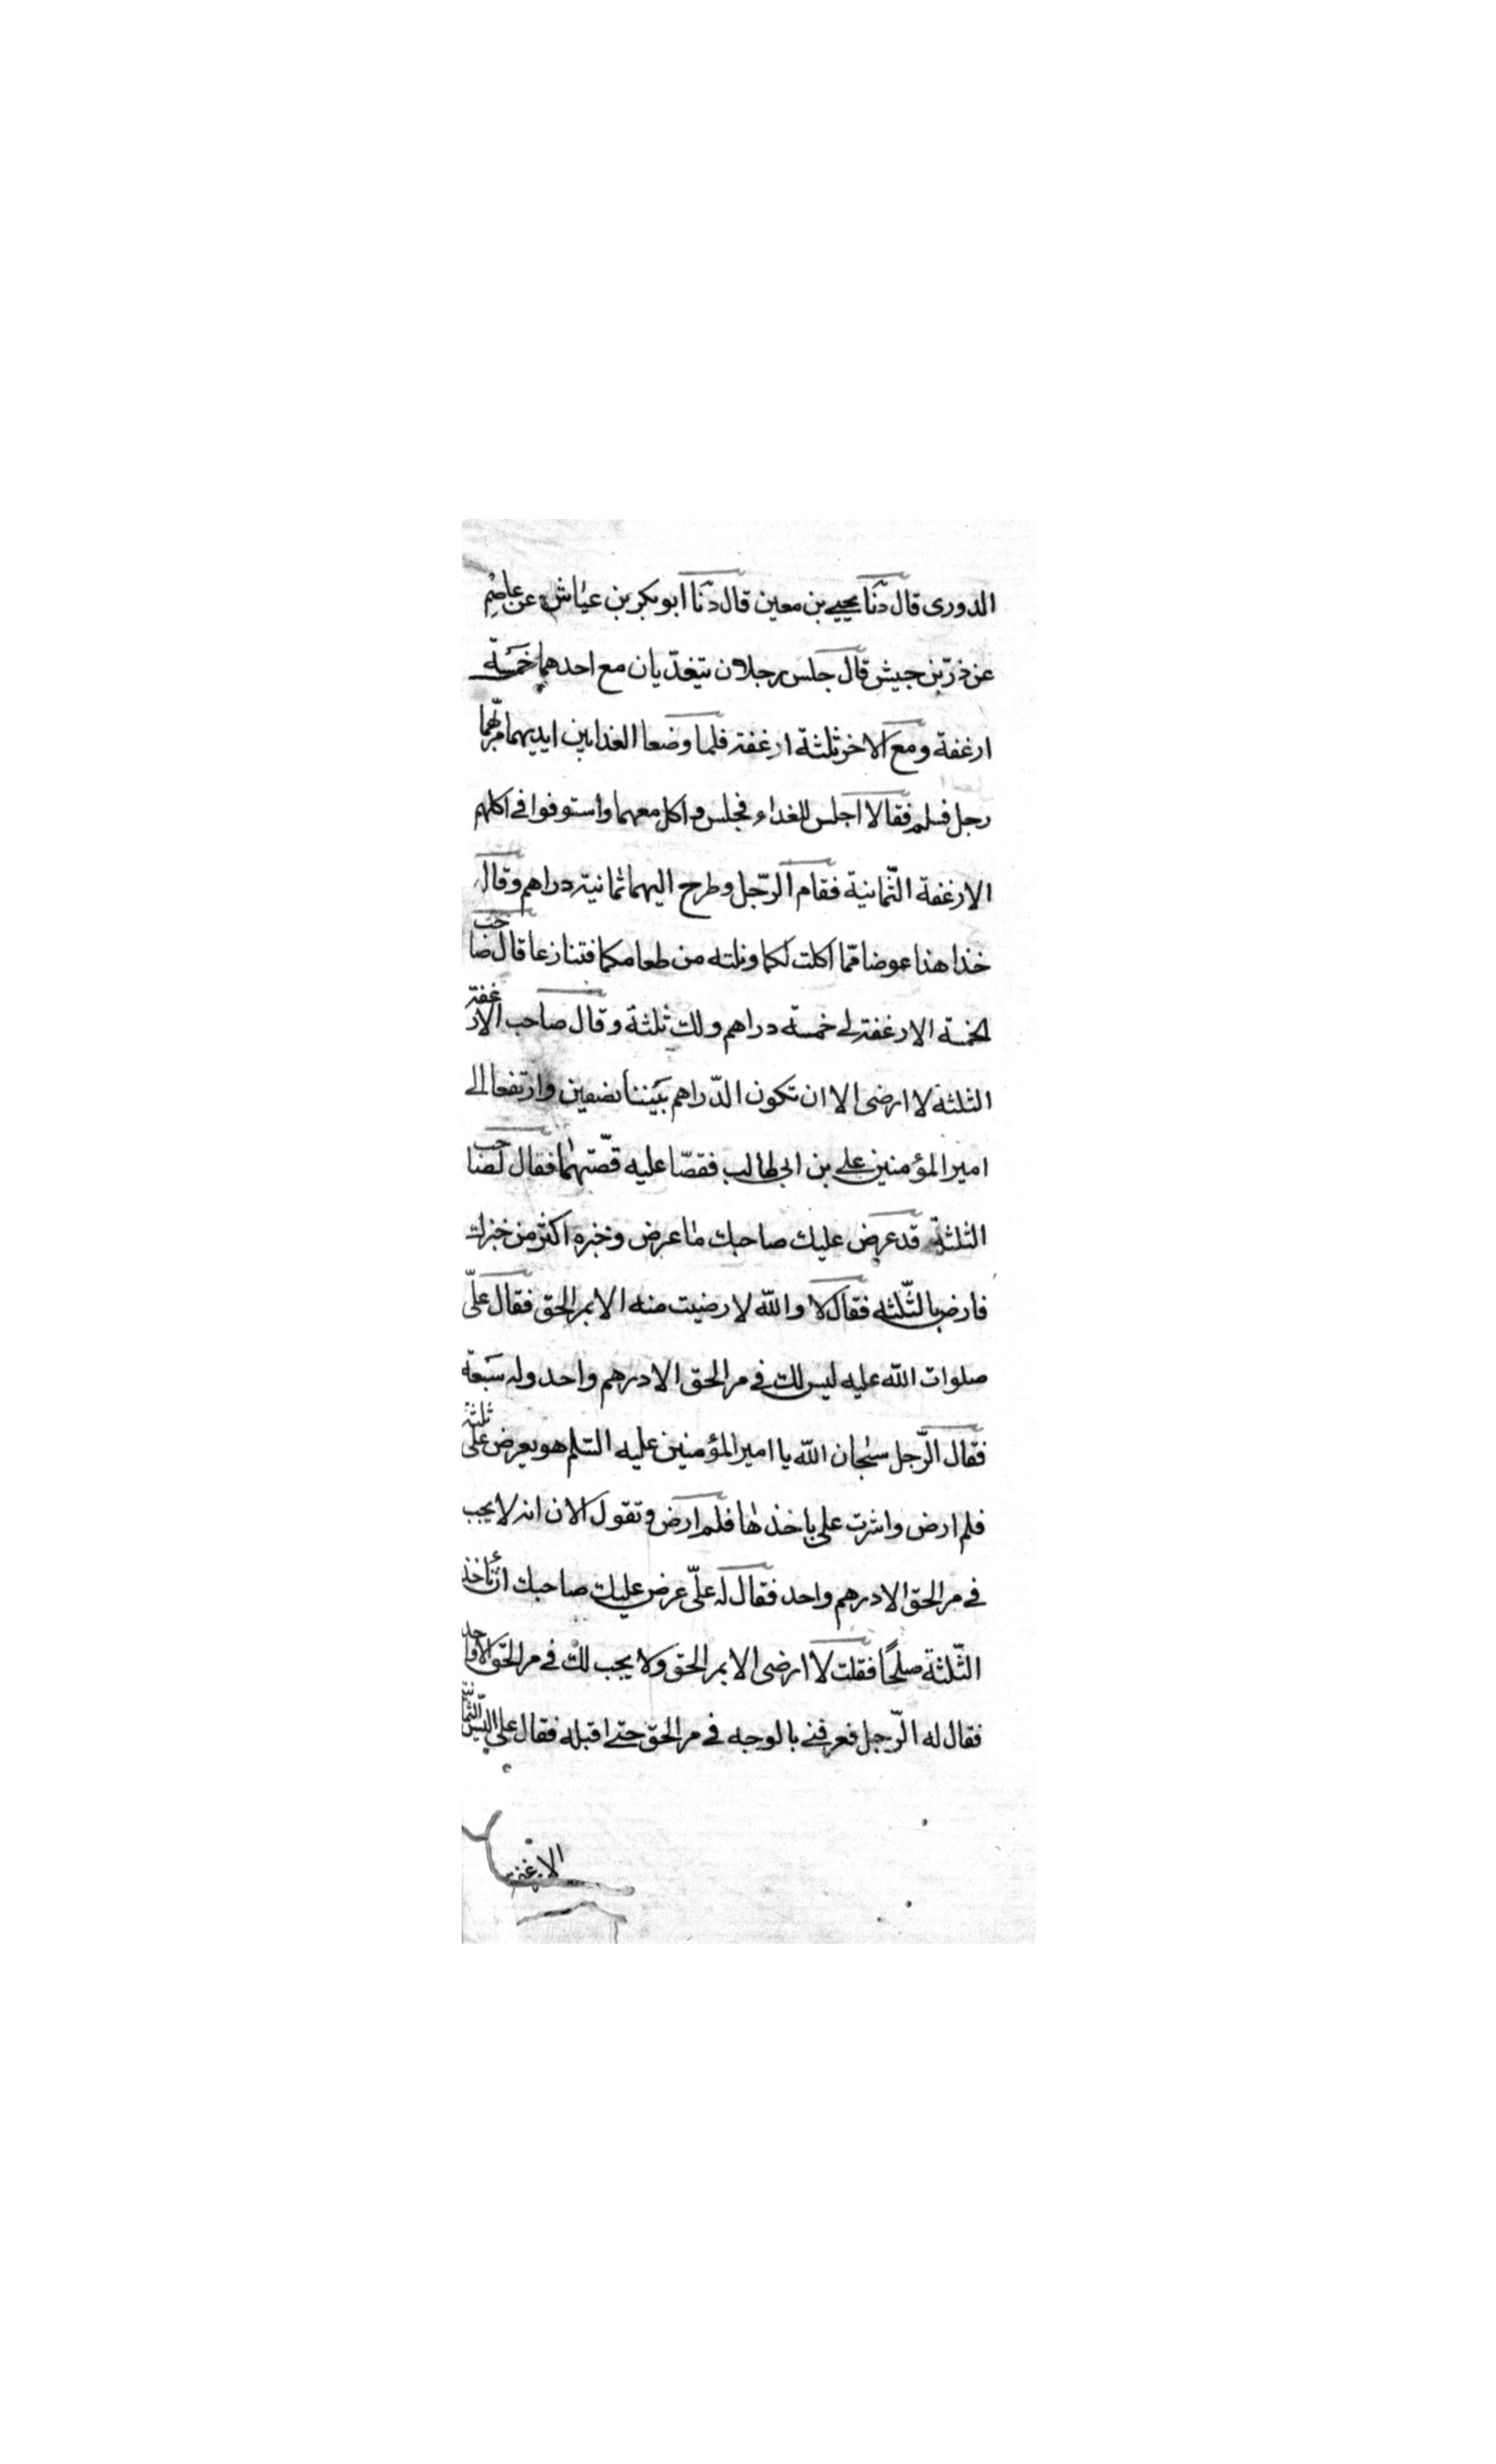 الدورى قال دثنا يحيى بن معين قال دثنا ابو بكر بن عياش عن عاصم
عن ذرّ بن جيش قال جلس رجلان يتغدّيان مع احدهما خمسة
ارغفة ومع الاخر ثلثة ارغفة فلما وضعا الغدا بين ايديهما مرّ بهما
رجل فسلم فقالا اجلس للغداء فجلس واكل معهما واستوفوا في اكلهم
الارغفة الثّمانية فقام الرّجل وطرح اليهما ثمانية دراهم وقال
خذا هذا عوضا ممّا اكلت لكما ونلته من طعامكما فتنازعا قال صاحب
الخمسة الارغفة لى خمسة دراهم ولك ثلثة وقال صاحب الارغفة
الثلثة لا ارضى الا ان تكون الدّراهم بيننا نصفين وارتفعا الى
امير المؤمنين على بن ابى طالب فقصّا عليه قصّتهما فقال لصاحب
الثلثة قد عرض عليك صاحبك ما عرض وخبزه اكثر من خبزك
فارض بالثّلثه فقال لا والله لا رضيت منه الا بمر الحق فقال علىّ
صلوات الله عليه ليس لك فى مر الحق الا درهم واحد وله سبعة
فقال الرّجل سبحان الله يا امير المؤمنين عليه السّلم هو يعرض علىّ ثلثة
فلم ارض واشرت على باخذها فلم ارض وتقول الان انه لا يجب
فى مر الحق الا درهم واحد فقال له علىّ عرض عليك صاحبك ان تأخذ
الثّلثة صلحًا فقلت لا ارضى الا بمر الحق ولا يجب لك فى مر الحق الا واحد
فقال له الرّجل فعرفنى بالوجه فى مر الحق حتى اقبله فقال على اليس الثمانية
الارغفة